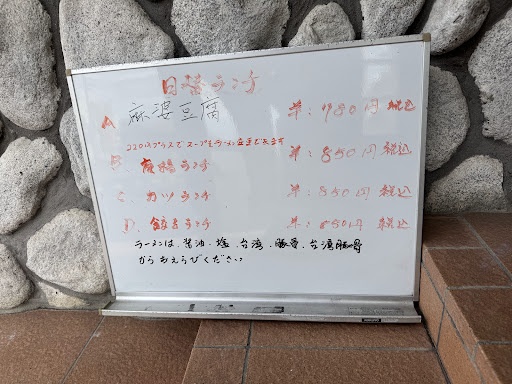 日替ランチ
A 麻婆豆腐 単:780円 税込
220円プラスでスープをラーメン変更できます
B ランチ 単:850円 税込
C カツランチ 単:850円 税込
D 餃子ランチ 単:850円 税込
ラーメンは、醤油、塩、台湾、豚骨、台湾豚骨
からおえらびください